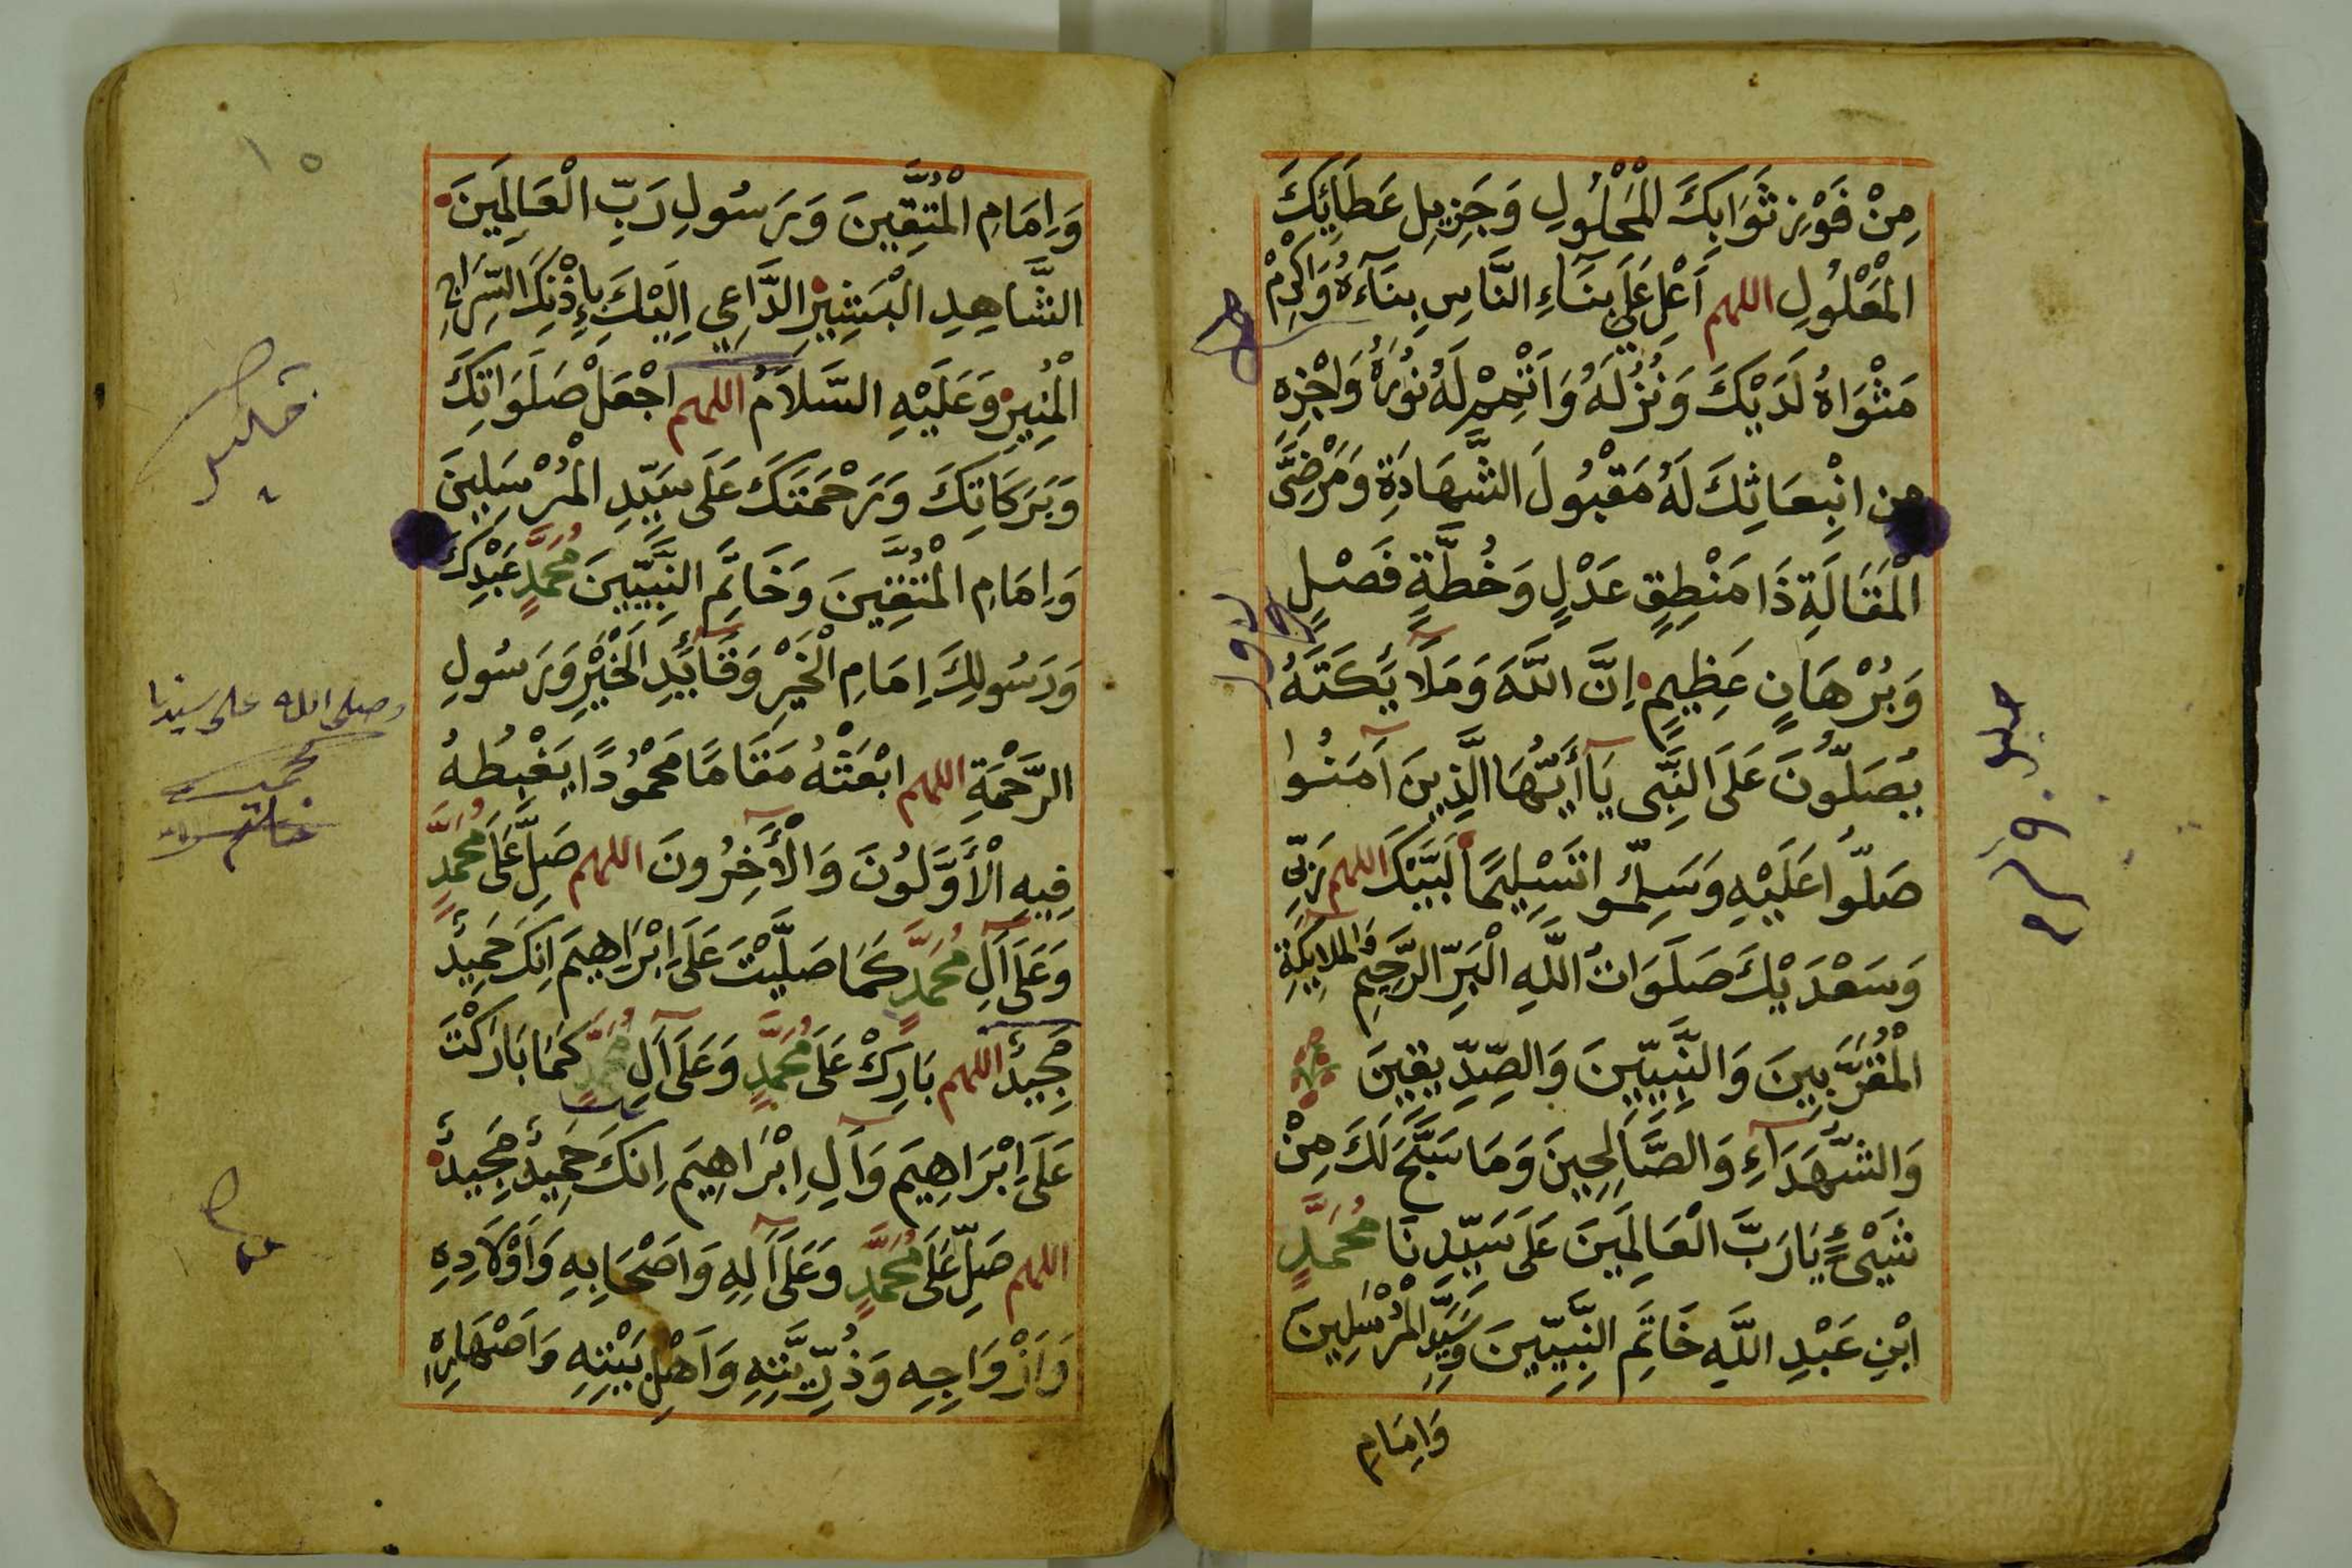 مِنْ فَوْزِ ثَوَابِكَ الْمَحْلُولِ وَجَزِيلِ عَطَائِكَ
الْمَعْلُولِ اللهم اَعْلِ عَلَى بِنَاءِ النَّاسِ بِنَآءَهُ وَاَكْرِمْ
مَثْوَاهُ لَدَيْكَ وَنُزُلَهُ وَاَتْمِمْ لَهُ نُورَهُ وَاجْزِهِ
مِنِ انْبِعَاثِكَ لَهُ مَقْبُولَ الشَّهَادَةِ وَمَرْضِيَّ
الْمَقَالَةِ ذَا مَنْطِقٍ عَدْلٍ وَخُطَّةٍ فَصْلٍ
وَبُرْهَانٍ عَظِيمٍ اِنَّ اللَّهَ وَمَلَآئِكَتَهُ
يُصَلُّونَ عَلَى النَّبِّى يَآ أَيُّهَا الَّذِينَ آمَنُوا
صَلُّوا عَلَيْهِ وَسَلِّمُوا تَسْلِيمًا لَبَّيْكَ اللهم رَبِّى
وَسَعْدَيْكَ صَلَوَاتُ اللَّهِ الْبَرِّ الرَّحِيمِ وَالْمَلَآئِكَةِ
الْمُقَرَّبِينَ وَالنَّبِيِّينَ وَالصِّدِّيقِينَ
وَالشُّهَدَآءِ وَالصَّالِحِينَ وَمَا سَبَّحَ لَكَ مِنْ
شَيْءٍ يَارَبَّ الْعَالَمِينَ عَلَى سَيِّدِنَا مُحَمَّدٍ
ابْنِ عَبْدِ اللَّهِ خَاتَمِ النَّبِيِّينَ وَسَيِّدِ الْمُرْسَلِينَ
وَاِمَامِ
١٥
وَاِمَامِ الْمُتَّقِينَ وَرَسُولِ رَبِّ الْعَالَمِينَ
الشَّاهِدِ الْبَشِيرِ الدَّاعِي اِلَيْكَ بِاِذْنِكَ السِّرَاجِ
الْمُنِيرِ وَعَلَيْهِ السَّلَامُ اللهم اجْعَلْ صَلَوَاتِكَ
وَبَرَكَاتِكَ وَرَحْمَتَكَ عَلَى سَيِّدِ الْمُرْسَلِينَ
وَاِمَامِ الْمُتَّقِينَ وَخَاتَمِ النَّبِيِّينَ مُحَمَّدٍ عَبْدِكَ
وَرَسُولِكَ اِمَامِ الْخَيْرِ وَقَآئِدِ الْخَيْرِ وَرَسُولِ
الرَّحْمَةِ اللهم ابْعَثْهُ مَقَامًا مَحْمُودًا يَغْبِطُهُ
فِيهِ الْأَوَّلُونَ وَالْآخِرُونَ اللهم صَلِّ عَلَى مُحَمَّدٍ
وَعَلَى آلِ مُحَمَّدٍ كَمَا صَلَّيْتَ عَلَى اِبْرَاهِيمَ اِنَّكَ حَمِيدٌ
مَجِيدٌ اللهم بَارِكْ عَلَى مُحَمَّدٍ وَعَلَى آلِ مُحَمَّدٍ كَمَا بَارَكْتَ
عَلَى اِبْرَاهِيمَ وَآلِ اِبْرَاهِيمَ اِنَّكَ حَمِيدٌ مَجِيدٌ
اللهم صَلِّ عَلَى مُحَمَّدٍ وَعَلَى آلِهِ وَاَصْحَابِهِ وَاَوْلَادِهِ
وَاَزْوَاجِهِ وَذُرِّيَّتِهِ وَاَهْلِ بَيْتِهِ وَاَصْهَارِهِ
وصلى الله على سيدنا
محمد